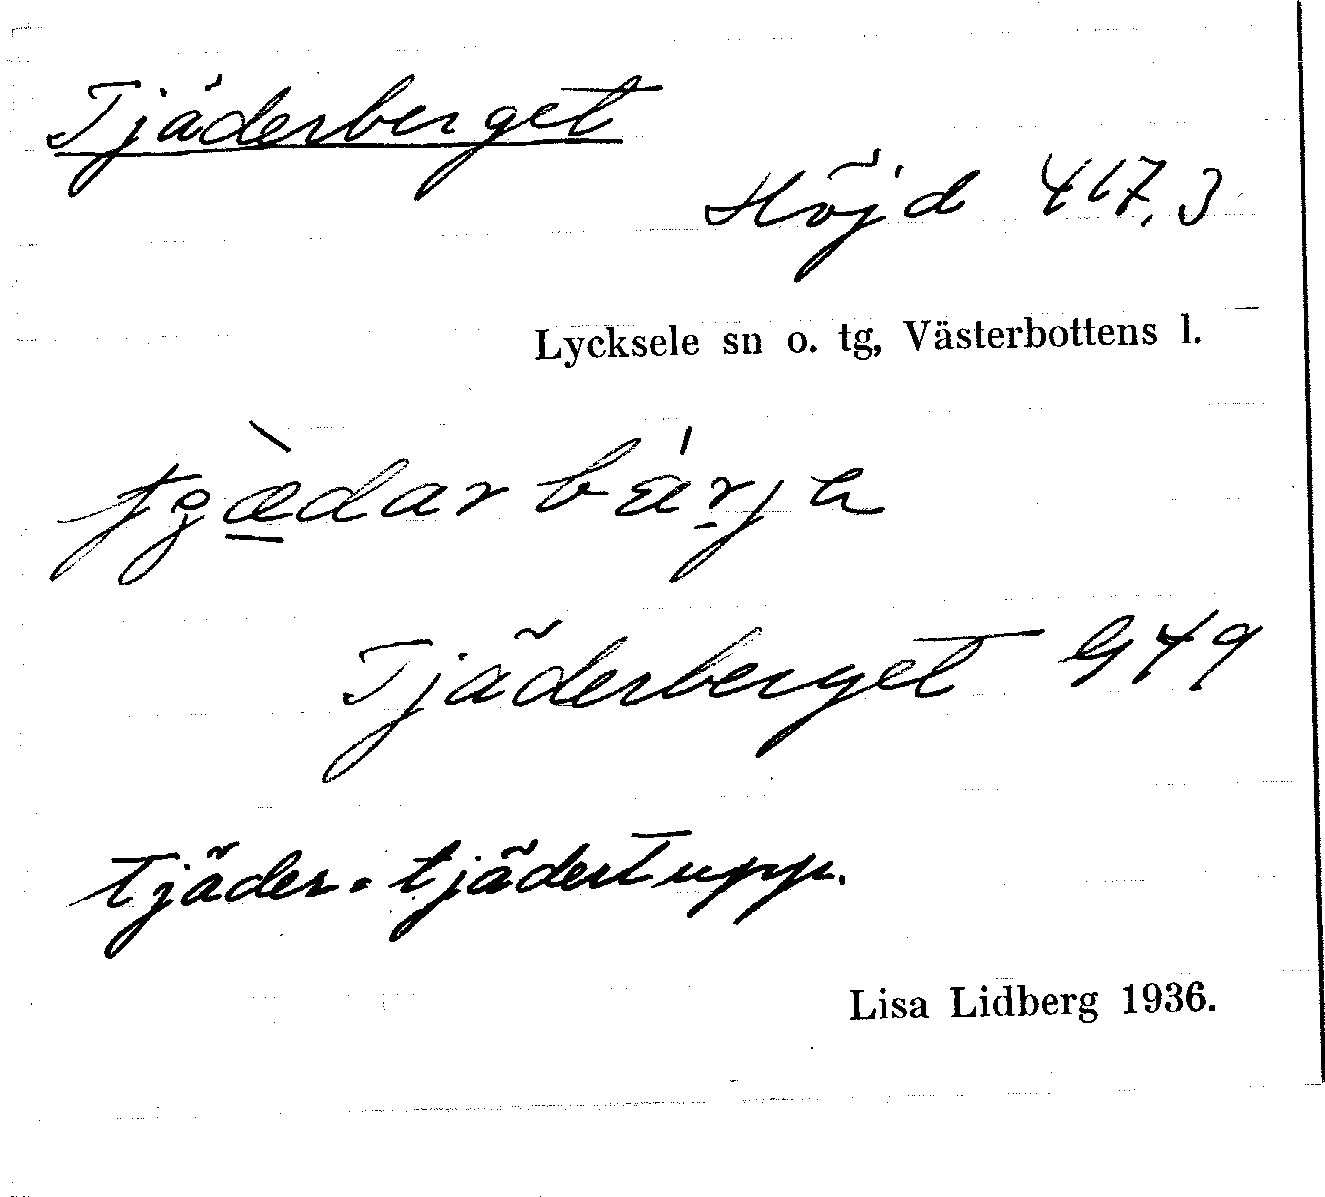 Tjäderberget
Höjd 417,3
Lycksele sn o. tg, Västerbottens l.
Tjäderberget G49
tjäder = tjädertupp.
Lisa Lidberg 1936.